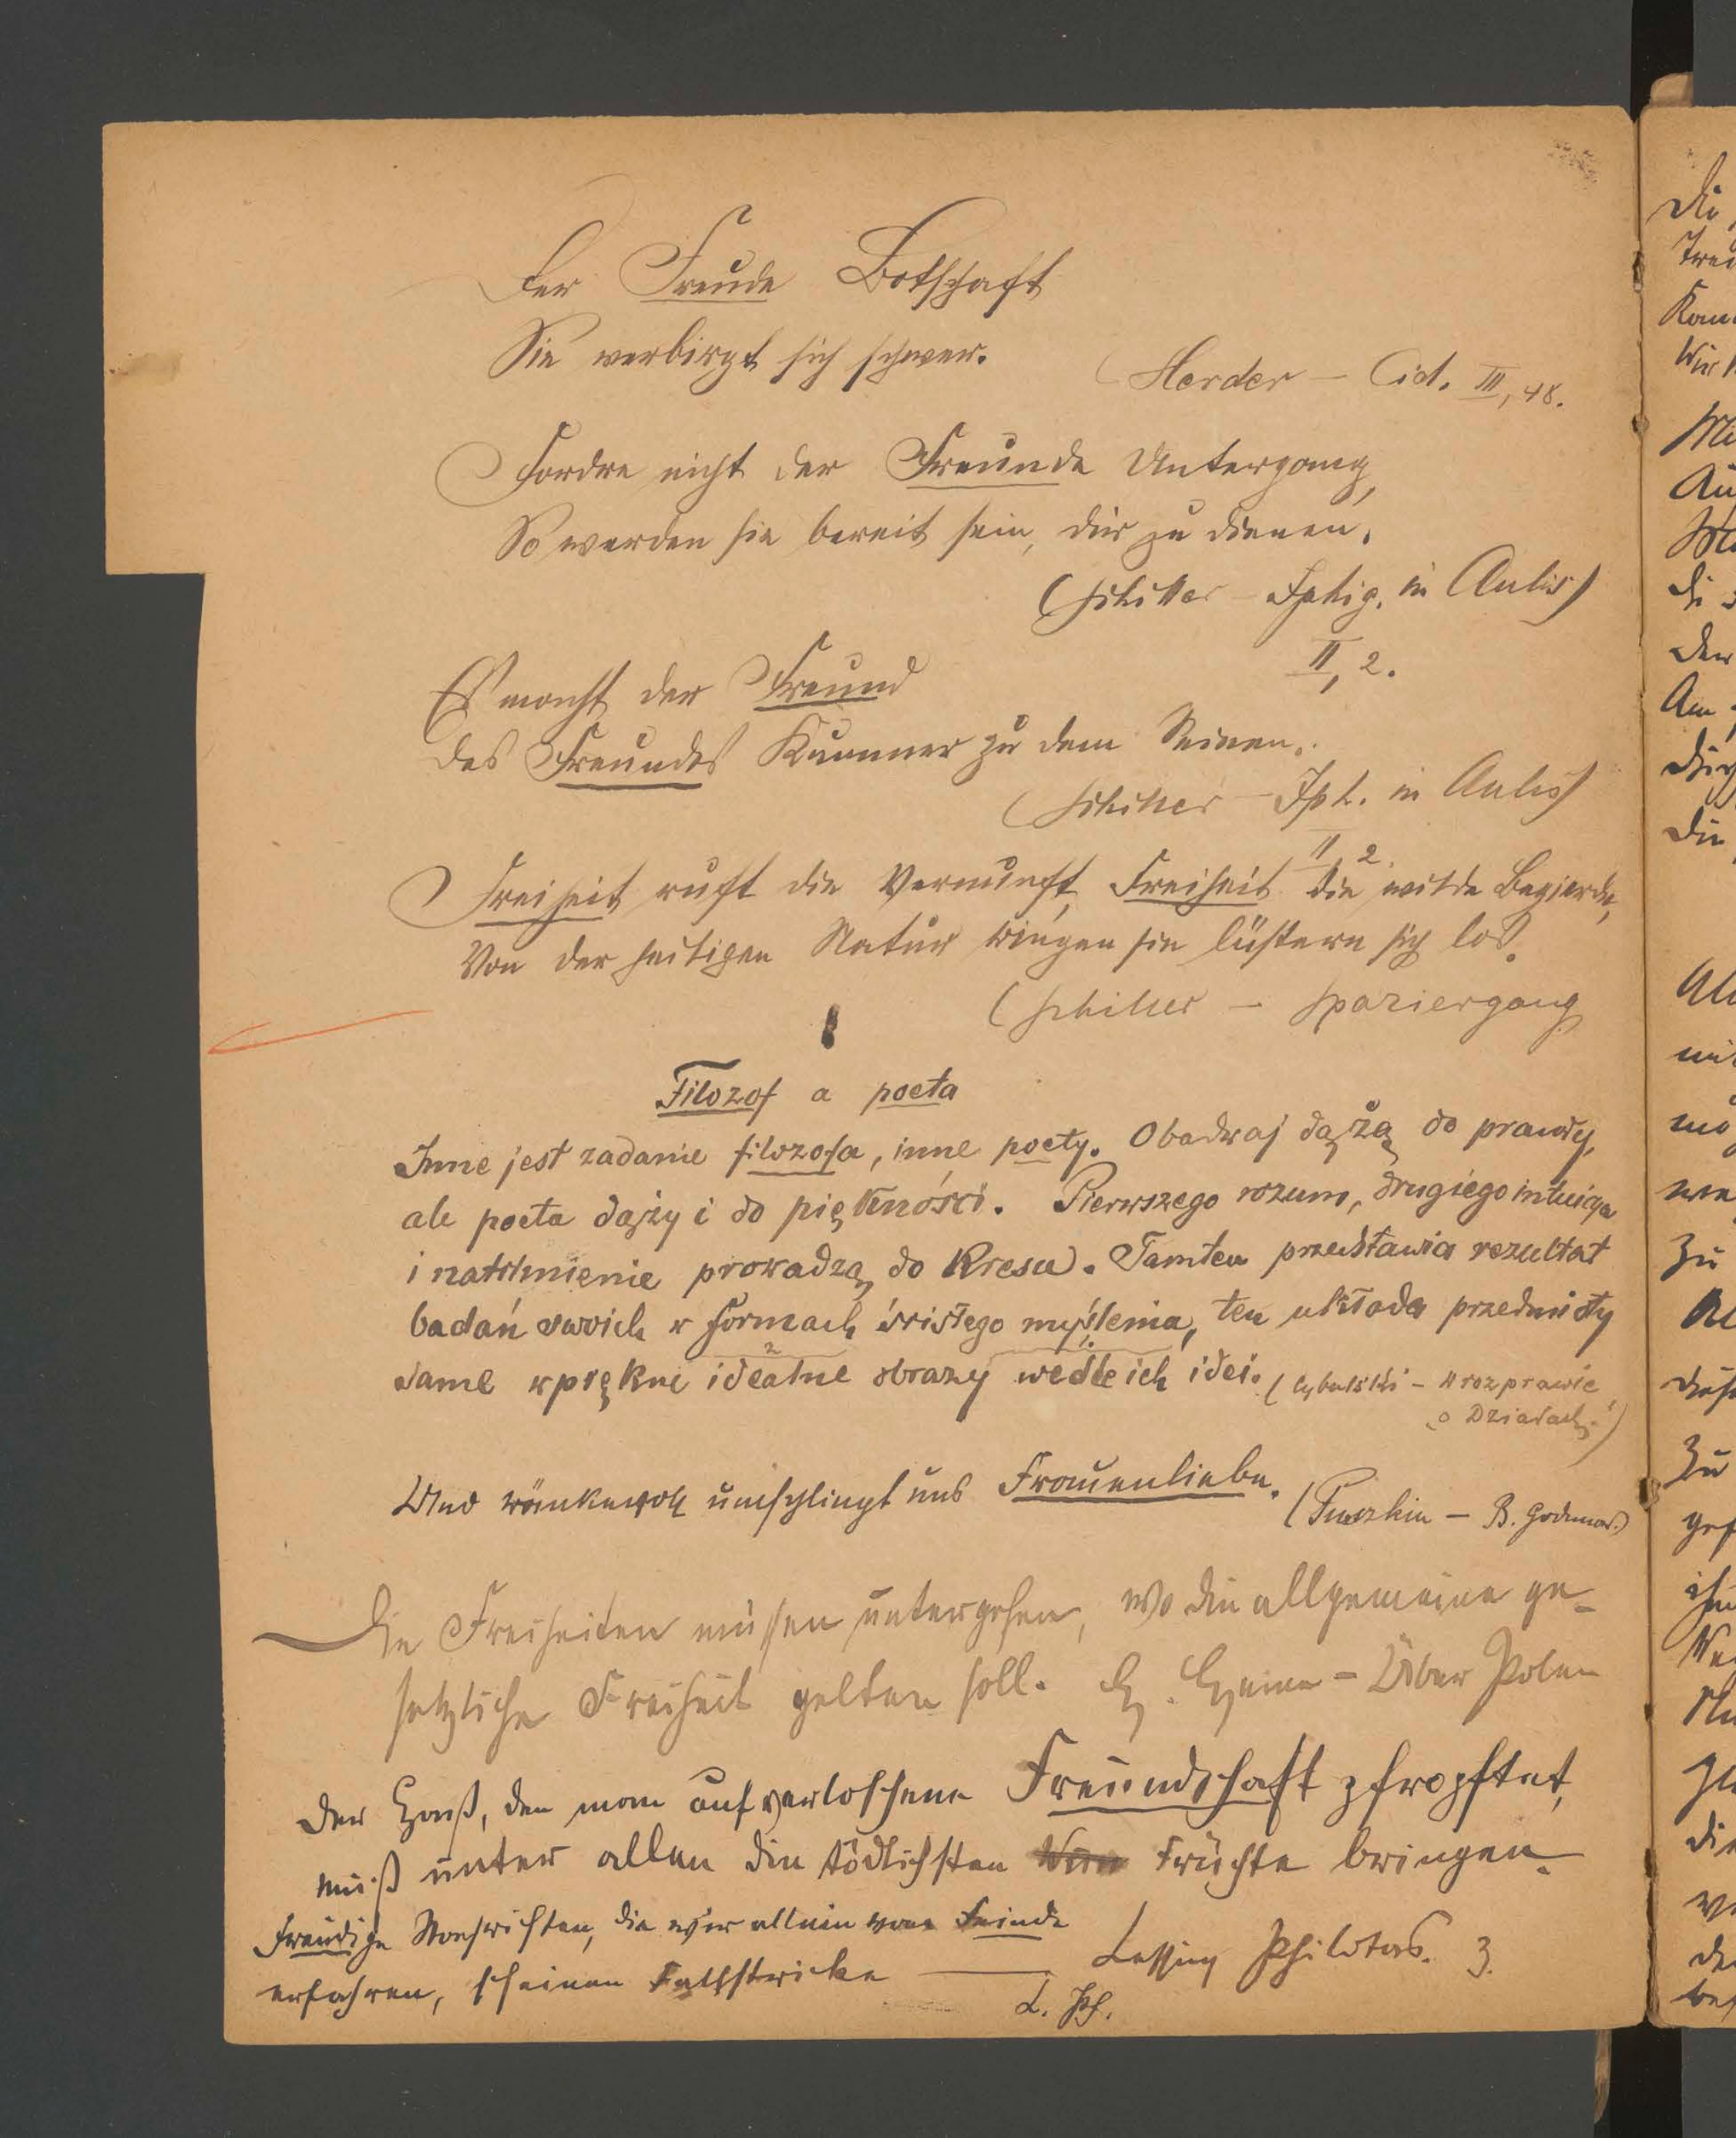 Der Freude Botschaft
Sie verbirgt sich schwer.
(Herder – Cid. III, 48.
Fordre nicht der Freunde Untergang,
So werden sie bereit sein, dir zu dienen.
(Schiller – Iphig. in Aulis)
II, 2.
Es macht der Freund
Des Freundes Kummer zu dem Seinen.
(Schiller – Iph. in Aulis)
II, 2.
Freiheit ruft die Vernunft, Freiheit die wilde Begierde,
Von der heiligen Natur ringen sie lüstern sich los.
(Schiller – Spaziergang
Filozof a poeta
Inne jest zadanie filozofa, inne poety. Obadwaj dążą do prawdy,
ale poeta dąży i do piękności. Pierwszego rozum, drugiego intuicya
i natchnienie prowadzą do kresu. Tamten przedstawia rezultat
badań swoich w formach ścisłego myślenia, ten układa przedmioty
same w piękne idealne obrazy wedle ich idei. (Cybulski – W rozprawie
o Dziadach.)
Und ränkevoll umschlingt uns Frauenliebe.
(Puszkin – B. Godunow.)
Die Freiheiten müssen untergehen, wo die allgemeine ge-
setzliche Freiheit gelten soll. H. Heine – Über Polen
Der Haß, den man auf verloschene Freundschaft pfropftet,
muß unter allen die tödlichsten Früchte bringen.
Freudige Nachrichten, die wir allein vom Feinde
Lessing Philotas. 3.
erfahren, scheinen Fallstricke
L. Ph.
Die
Kam
Am
Die
Zu
Zu